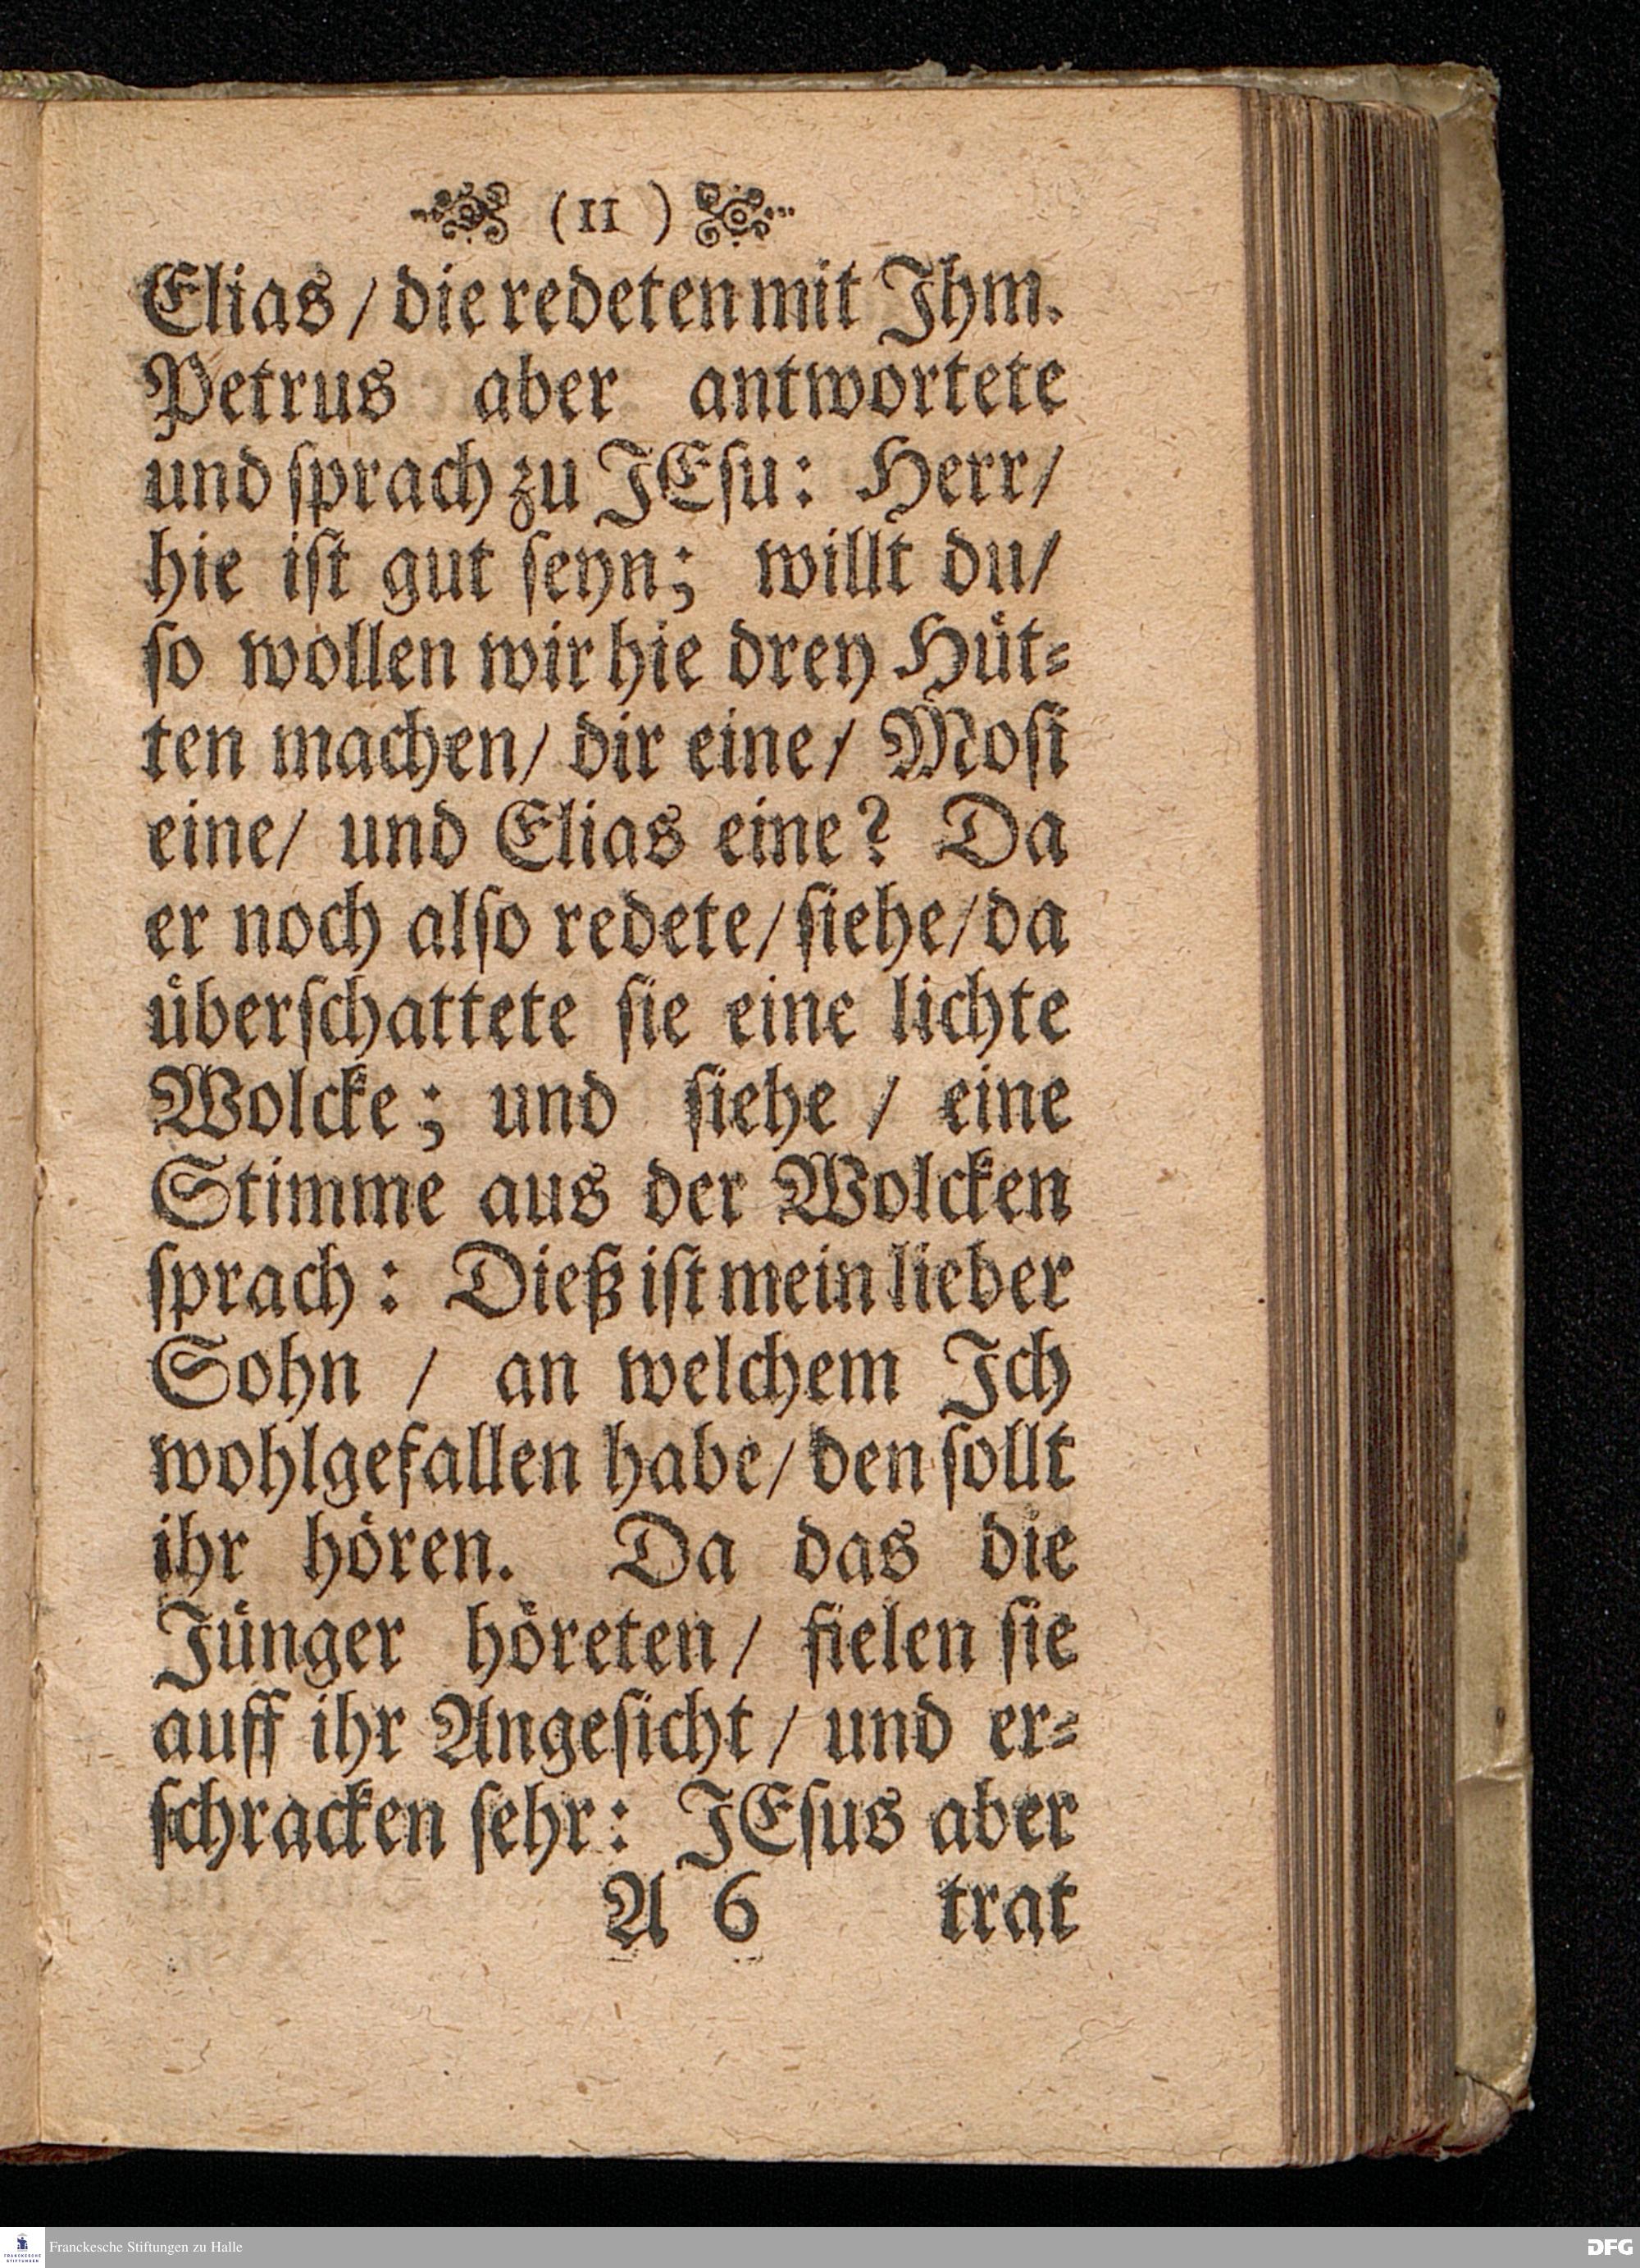 (11)
Elias / die redeten mit Ihm.
Petrus aber antwortete
und ſprach zu JEſu: Herr/
hie iſt gut ſeyn; willt du/
ſo wollen wir hie drey Huͤt⸗
ten machen/ dir eine/ Moſi
eine/ und Elias eine? Da
er noch alſo redete/ ſiehe/ da
uͤberſchattete ſie eine lichte
Wolcke; und ſiehe / eine
Stimme aus der Wolcken
ſprach: Dieß iſt mein lieber
Sohn / an welchem Ich
wohlgefallen habe/ den ſollt
ihr hoͤren. Da das die
Juͤnger hoͤreten/ fielen ſie
auff ihr Angeſicht / und er⸗
ſchracken ſehr: JEſus aber
A 6 trat
FRANCKESCHE STIFTUNGEN
Franckesche Stiftungen zu Halle
DFG